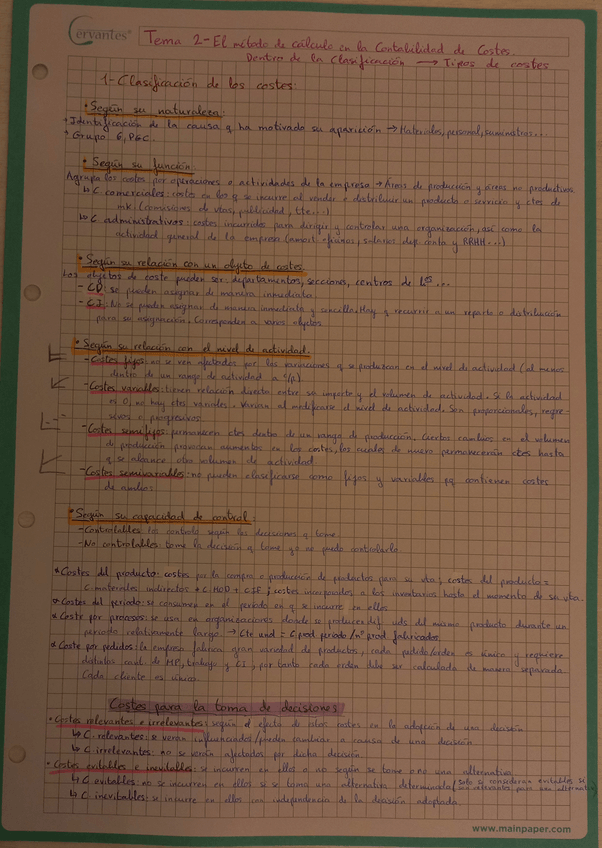 Cervantes®
Tema 2 - El método de cálculo en la Contabilidad de Costes.
Dentro de la Clasificación → Tipos de costes
1- Clasificación de los costes:
• Según su naturaleza:
• Identificación de la causa q ha motivado su aparición → Materiales, personal, suministros...
• Grupo 6, PGC.
• Según su función
Agrupa los costes por operaciones o actividades de la empresa → Áreas de producción y áreas no productivas
↳ C comerciales: costes en los q se incurre al vender o distribuir un producto o servicio y ctes de
mk. (comisiones de vtas, publicidad, tte...)
↳ C administrativos: costes incurridos para dirigir y controlar una organización, así como la
actividad general de la empresa (amort. oficinas, salarios dep. conta y RRHH...)
• Según su relación con un objeto de costes.
Los objetos de coste pueden ser: departamentos, secciones, centros de
- CD: se pueden asignar de manera inmediata.
- CI: No se pueden asignar de manera inmediata y sencilla. Hay q recurrir a un reparto o distribución
para su asignación. Corresponden a varios objetos
• Según su relación con el nivel de actividad.
- Costes fijos: no se ven afectados por las variaciones q se produzcan en el nivel de actividad (al menos
dentro de un rango de actividad a c/p)
- Costes variables: tienen relación directa entre su importe y el volumen de actividad. Si la actividad
es 0, no hay ctes variables. Varían al modificarse el nivel de actividad. Son proporcionales, regre-
sivos o progresivos
- Costes semifijos: permanecen ctes dentro de un rango de producción. Ciertos cambios en el volumen
de producción provocan aumentos en los costes, los cuales de nuevo permanecerán ctes hasta
q se alcance otro volumen de actividad
- Costes semivariables: no pueden clasificarse como fijos y variables pq contienen costes
de ambos.
• Según su capacidad de control:
- Controlables: los controlo según las decisiones q tome
- No controlables: tome la decisión q tome yo no puedo controlarlo.
* Costes del producto: costes por la compra o producción de productos para su vta; costes del producto =
C. materiales indirectos + C. MOD + CIF; costes incorporados a los inventarios hasta el momento de su vta.
* Costes del período: se consumen en el período en q se incurre en ellos
* Coste por procesos: se usa en organizaciones donde se producen uds del mismo producto durante un
período relativamente largo. → Cte und = C. prod. período / nº prod. fabricados
* Coste por pedidos: la empresa fabrica gran variedad de productos, cada pedido/orden es único y requiere
distintas cant. de MP, trabajo y CI, por tanto cada orden debe ser calculada de manera separada
Cada cliente es único.
Costes para la toma de decisiones
• Costes relevantes e irrelevantes: según el efecto de estos costes en la adopción de una decisión
↳ C. relevantes: se verán influenciados/pueden cambiar a causa de una decisión
↳ C irrelevantes: no se verán afectados por dicha decisión.
• Costes evitables e inevitables: se incurren en ellos o no según se tome o no una alternativa
↳ C evitables: no se incurren en ellos si se toma una alternativa determinada (solo se consideran evitables si
son relevantes para una alternativa)
↳ C. inevitables: se incurre en ellos con independencia de la decisión adoptada.
www.mainpaper.com